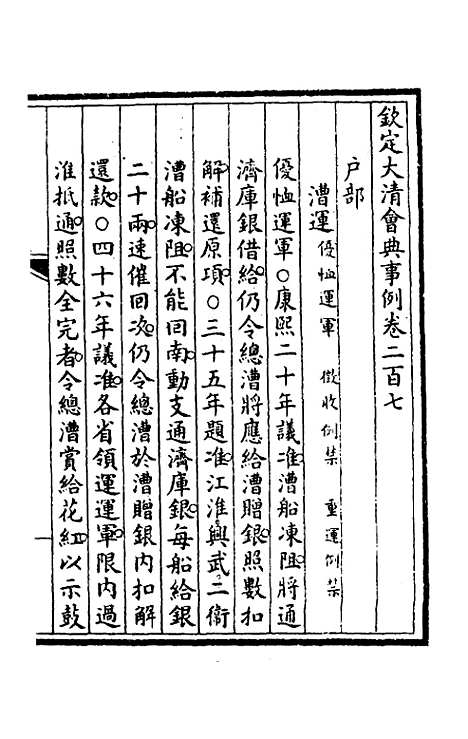 欽定大清會典事例卷二百七
戶部
漕運優恤運軍 徵收例禁 重運例禁
優恤運軍○康熙二十年議准。漕船凍阻。將通
濟庫銀借給。仍令總漕將應給漕贈銀。照數扣
解補還原項○三十五年題准。江淮興武二衛
漕船凍阻。不能回南。動支通濟庫銀。每船給銀
二十兩。速催回次。仍令總漕於漕贈銀內扣解
還款。○四十六年議准。各省領運運軍。限內過
淮抵通。照數全完者。令總漕賞給花紅。以示鼓